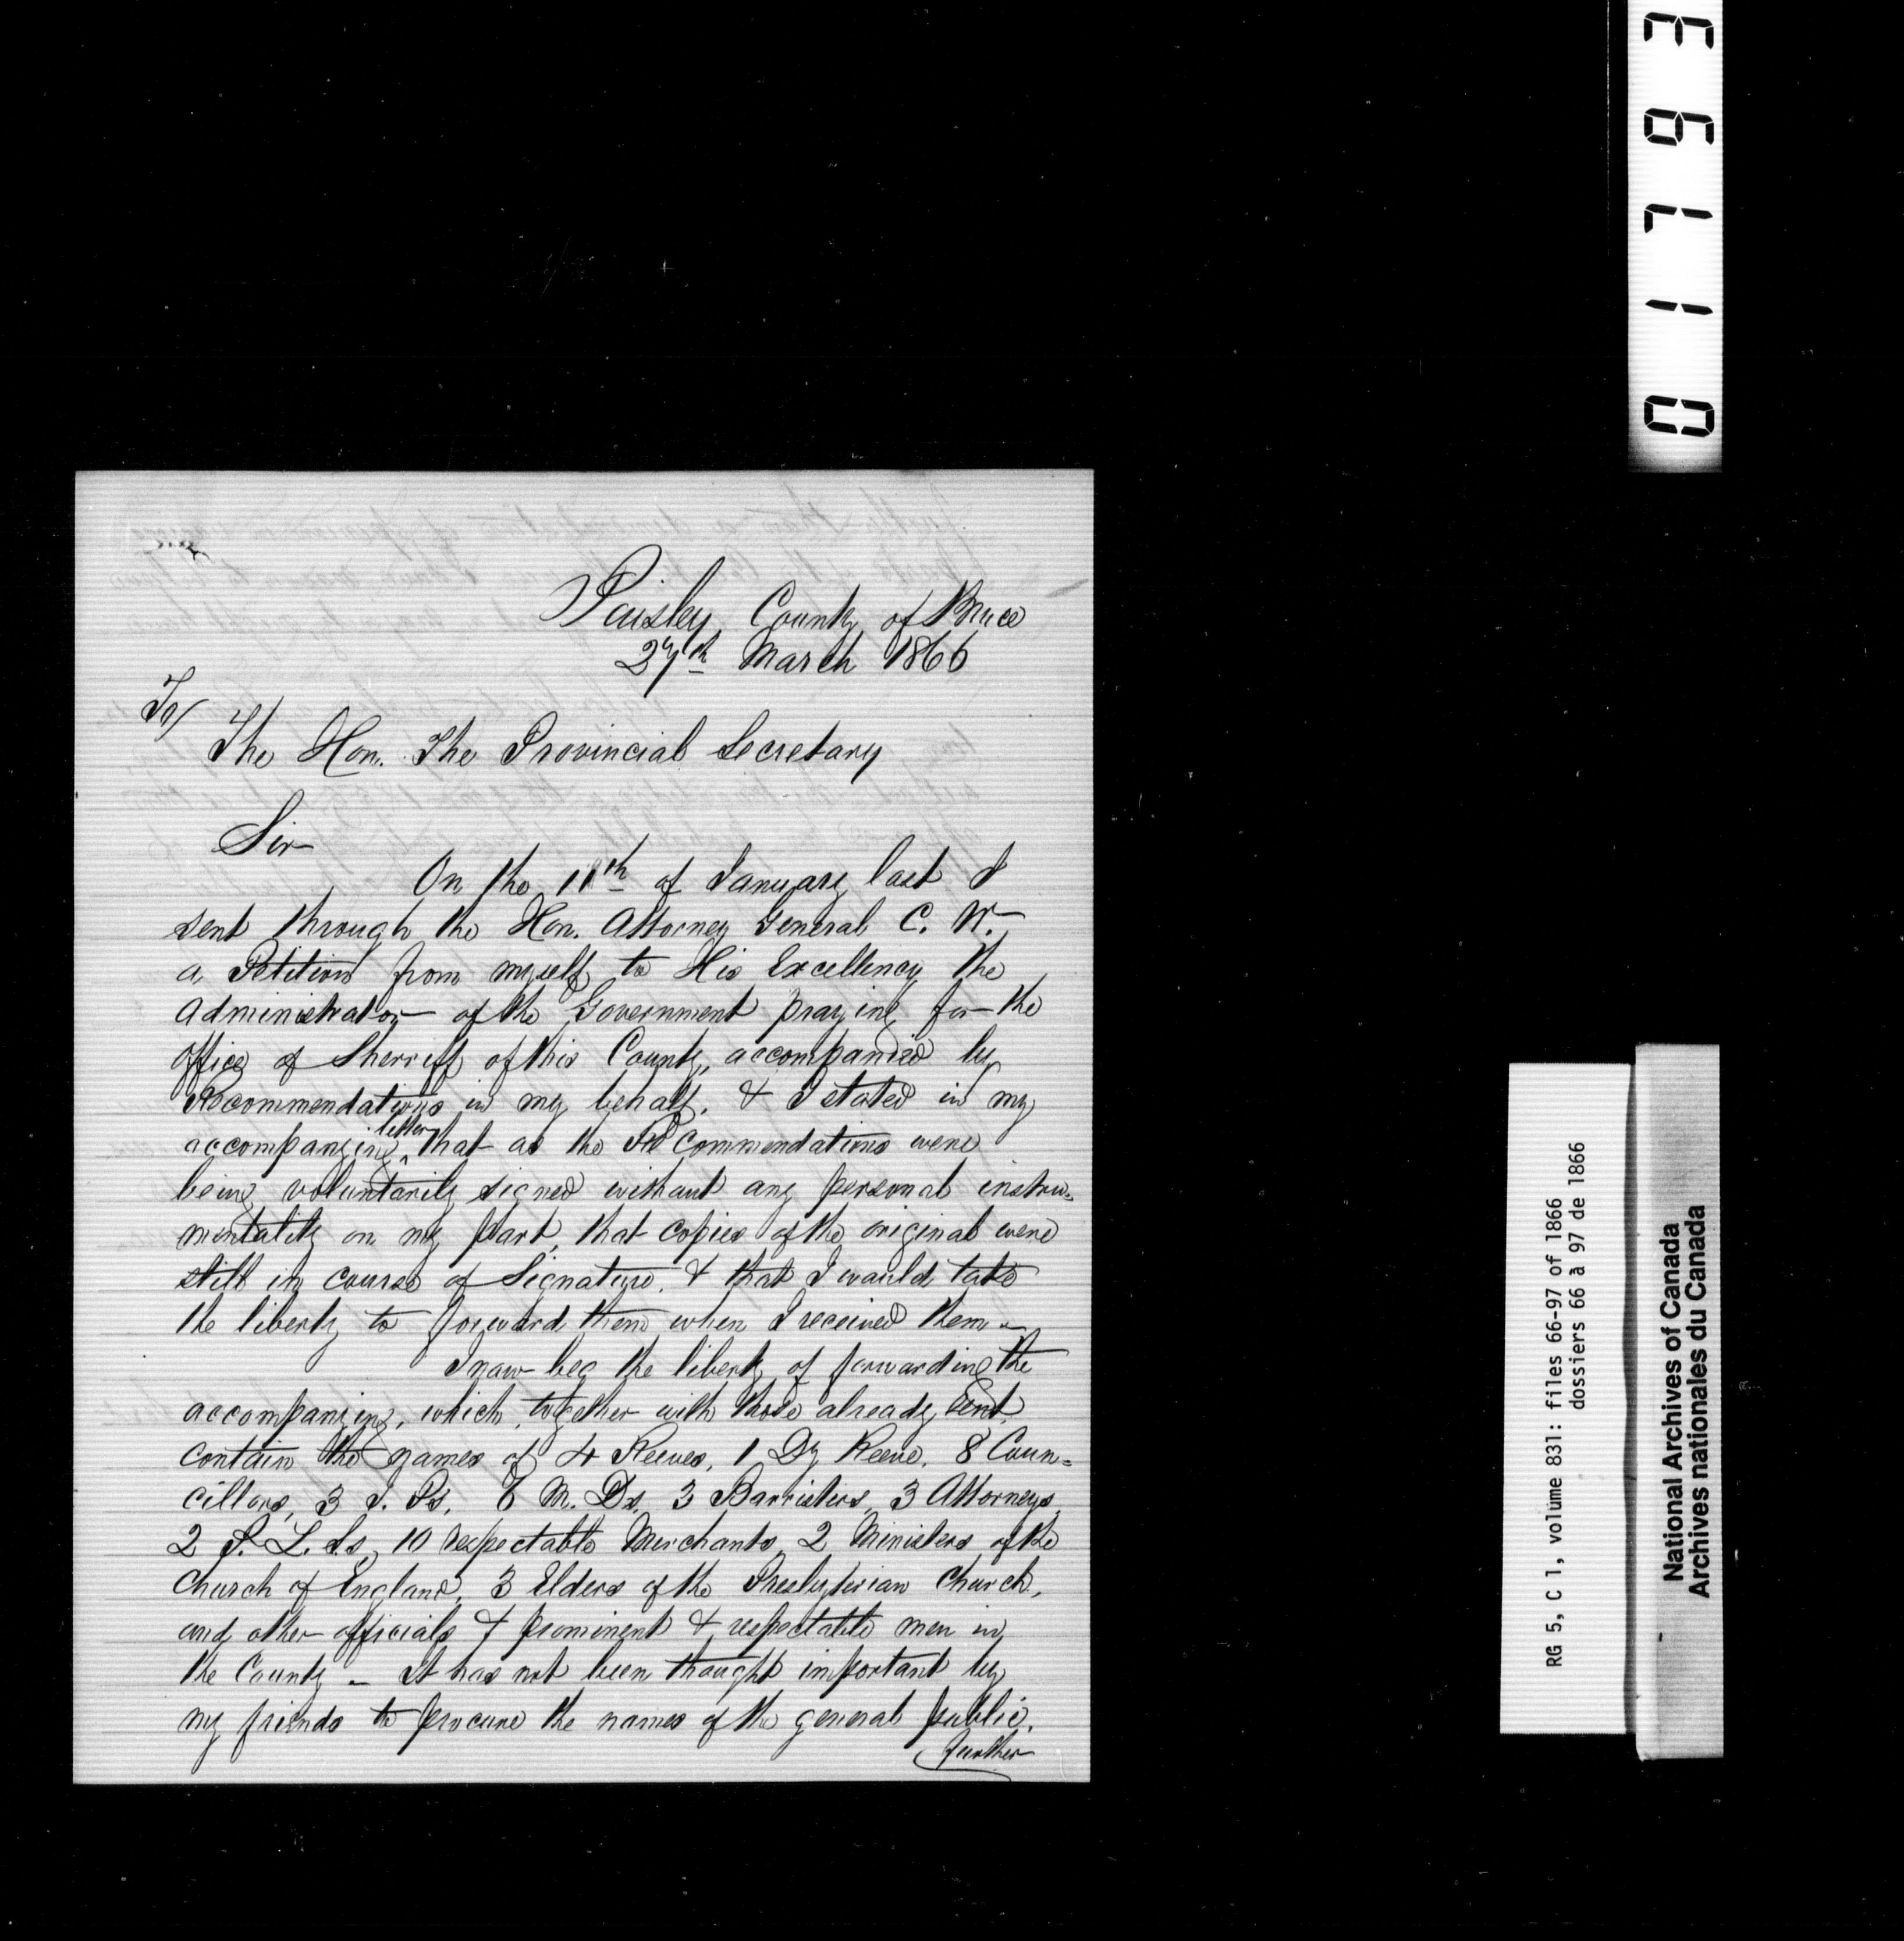 Paisley County of Bruce
27th March 1866
To/
The Hon. The Provincial Secretary
Sir
On the 11th of January last I
sent through the Hon. Attorney General C. W.
a Petition from myself to His Excellency the
Administrator of the Government praying for the
office of Sherriff of this County, accompanied by
Recommendations in my behalf. & I stated in my
accompanying letter that as the Recommendations were
being voluntarily signed without any personal instru=
mentality on my part, that copies of the original were
still in course of Signature. & that I would take
the liberty to forward them when I received them -
I now beg the liberty of forwarding the
accompanying, which, together with those already sent
contain the names of 4 Reeves, 1 Dy Reeve, 8 Coun=
cillors, 3 J. Ps, 6 M. Ds, 3 Barristers, 3 Attorneys,
2 P. L. Ss, 10 respectable Merchants, 2 Ministers of the
Church of England, 3 Elders of the Presbyterian Church,
and other officials & prominent & respectable men in
the County - It has not been thought important by
my friends to procure the names of the general public.
further
01793
RG 5, C 1, volume 831: files 66-97 of 1866
dossiers 66 à 97 de 1866
National Archives of Canada
Archives nationales du Canada